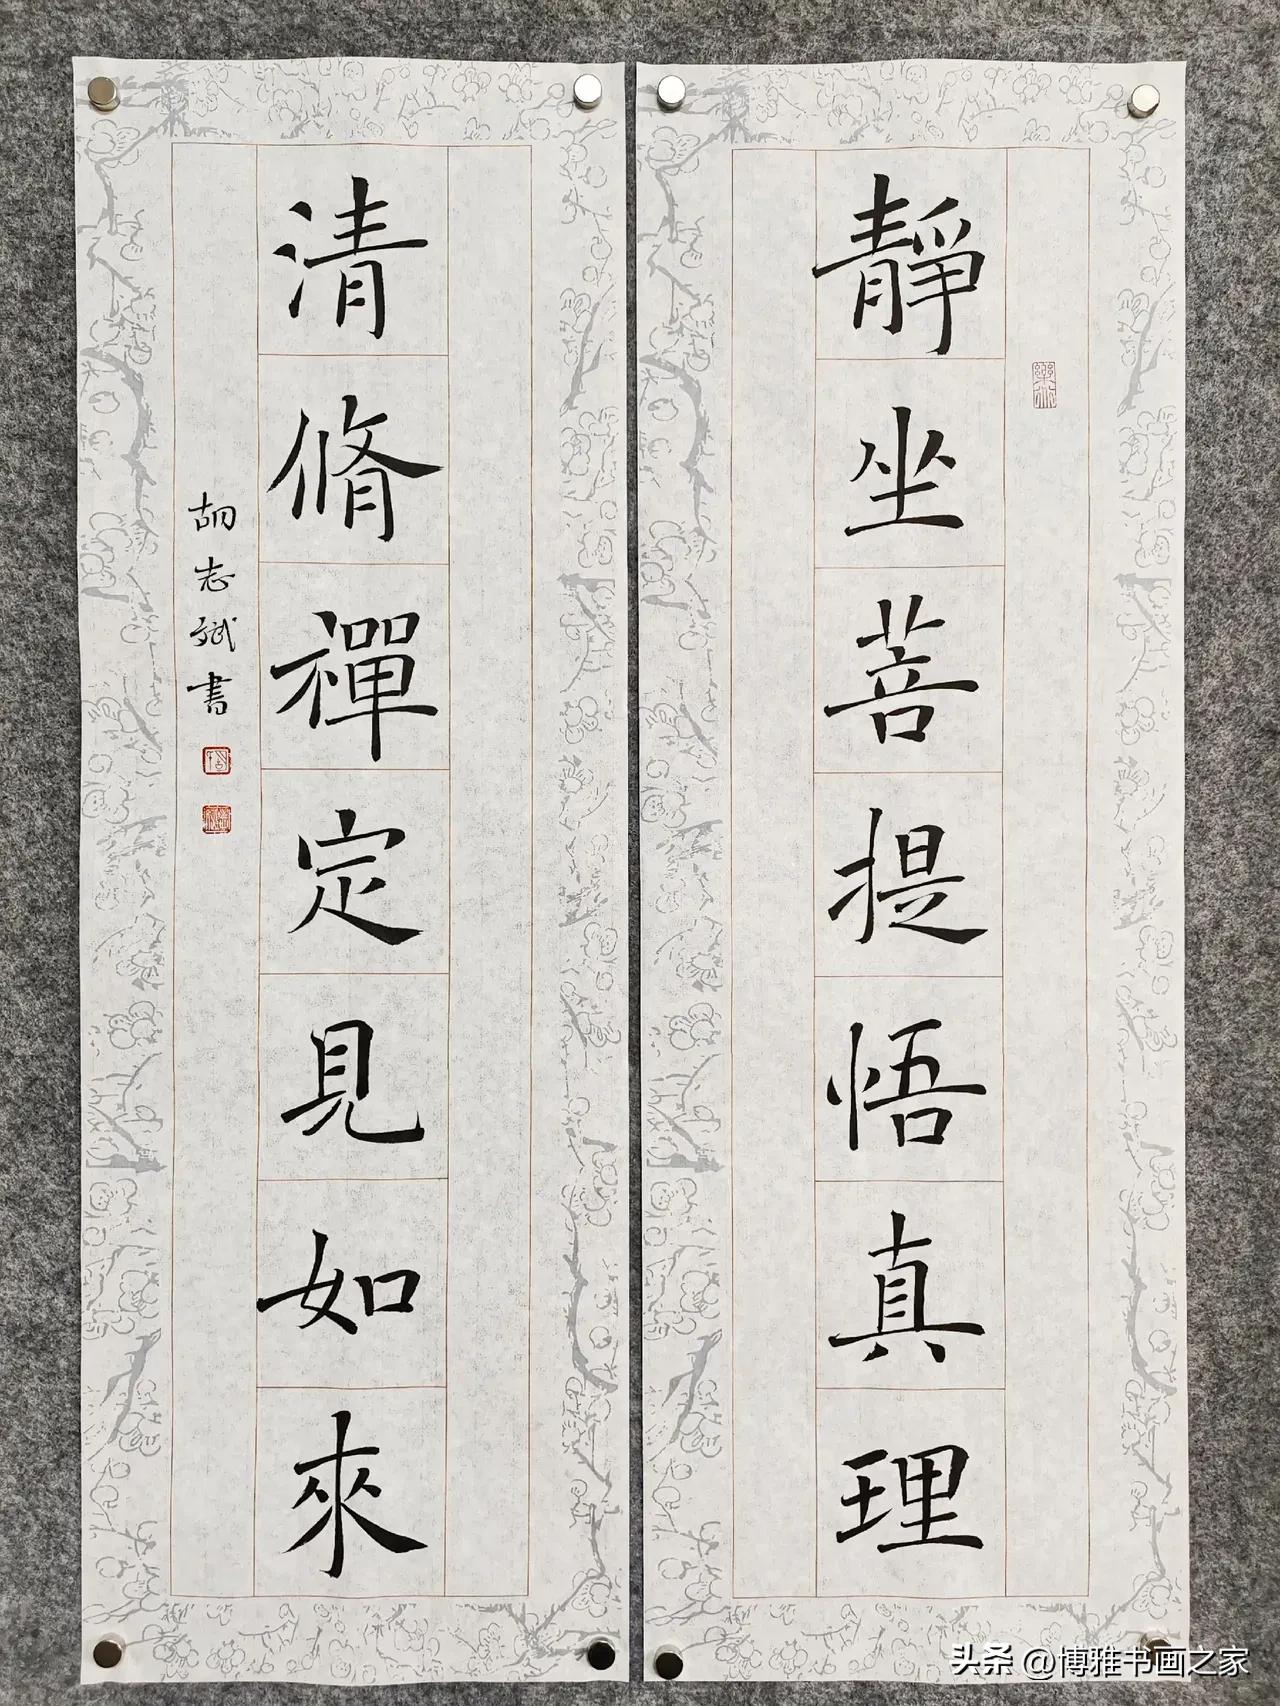 靜坐菩提悟真理
清脩禪定見如來
胡志斌書
头条 @博雅书画之家